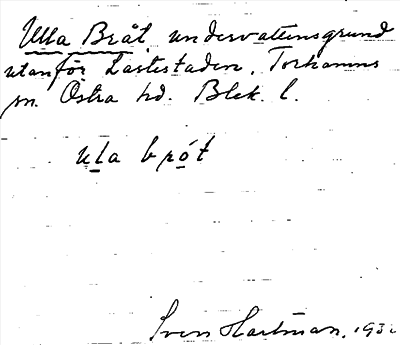 Ulla Bråt, undervattensgrund
utanför Lastestaden, Torhamns
sn. Östra hd. Blek. l.
ula brót
Sven Hartman, 193